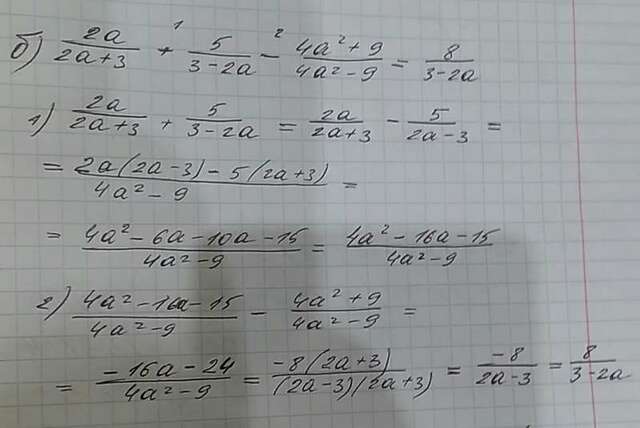 б) 2a/(2a+3) +¹ 5/(3-2a) -² (4a²+9)/(4a²-9) = 8/(3-2a)
1) 2a/(2a+3) + 5/(3-2a) = 2a/(2a+3) - 5/(2a-3) =
= (2a(2a-3)-5(2a+3))/(4a²-9) =
= (4a²-6a-10a-15)/(4a²-9) = (4a²-16a-15)/(4a²-9)
2) (4a²-16a-15)/(4a²-9) - (4a²+9)/(4a²-9) =
= (-16a-24)/(4a²-9) = -8(2a+3)/((2a-3)(2a+3)) = -8/(2a-3) = 8/(3-2a)